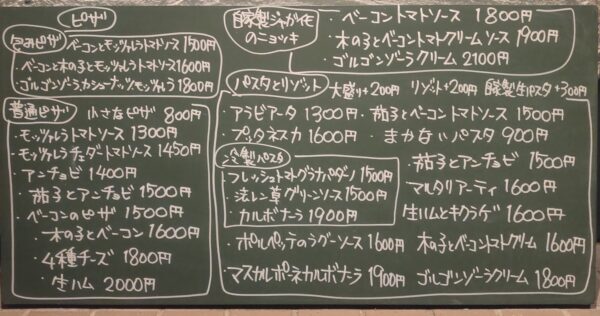 ピザ
包みピザ
ベーコンとモッツァレラトマトソース 1500円
・ベーコンと木の子とモッツァレラトマトソース1600円
・ゴルゴンゾーラ、カシューナッツ、モッツァレラ 1800円
普通ピザ
小さなピザ 800円
・モッツァレラトマトソース 1300円
・モッツァレラチェダートマトソース 1450円
・アンチョビ 1400円
・茄子とアンチョビ 1500円
・ベーコンのピザ 1500円
・木の子とベーコン 1600円
・4種チーズ 1800円
・生ハム 2000円
自家製ジャガイモのニョッキ
・ベーコントマトソース 1800円
・木の子とベーコントマトクリームソース 1900円
・ゴルゴンゾーラクリーム 2100円
パスタとリゾット
大盛り+200円 リゾット+200円 自家製生パスタ+300円
・アラビアータ 1300円 ・茄子とベーコントマトソース 1500円
・プッタネスカ 1600円 ・まかないパスタ 900円
冷製パスタ
・フレッシュトマトグラナパダーノ 1500円
・法レン草グリーンソース 1500円
・カルボナーラ 1900円
・茄子とアンチョビ 1500円
マルタリアーティ 1600円
生ハムとキクラゲ 1600円
・ポルペッテのラグーソース 1600円 木の子とベーコントマトクリーム 1600円
マスカルポーネカルボナーラ 1900円 ゴルゴンゾーラクリーム 1800円